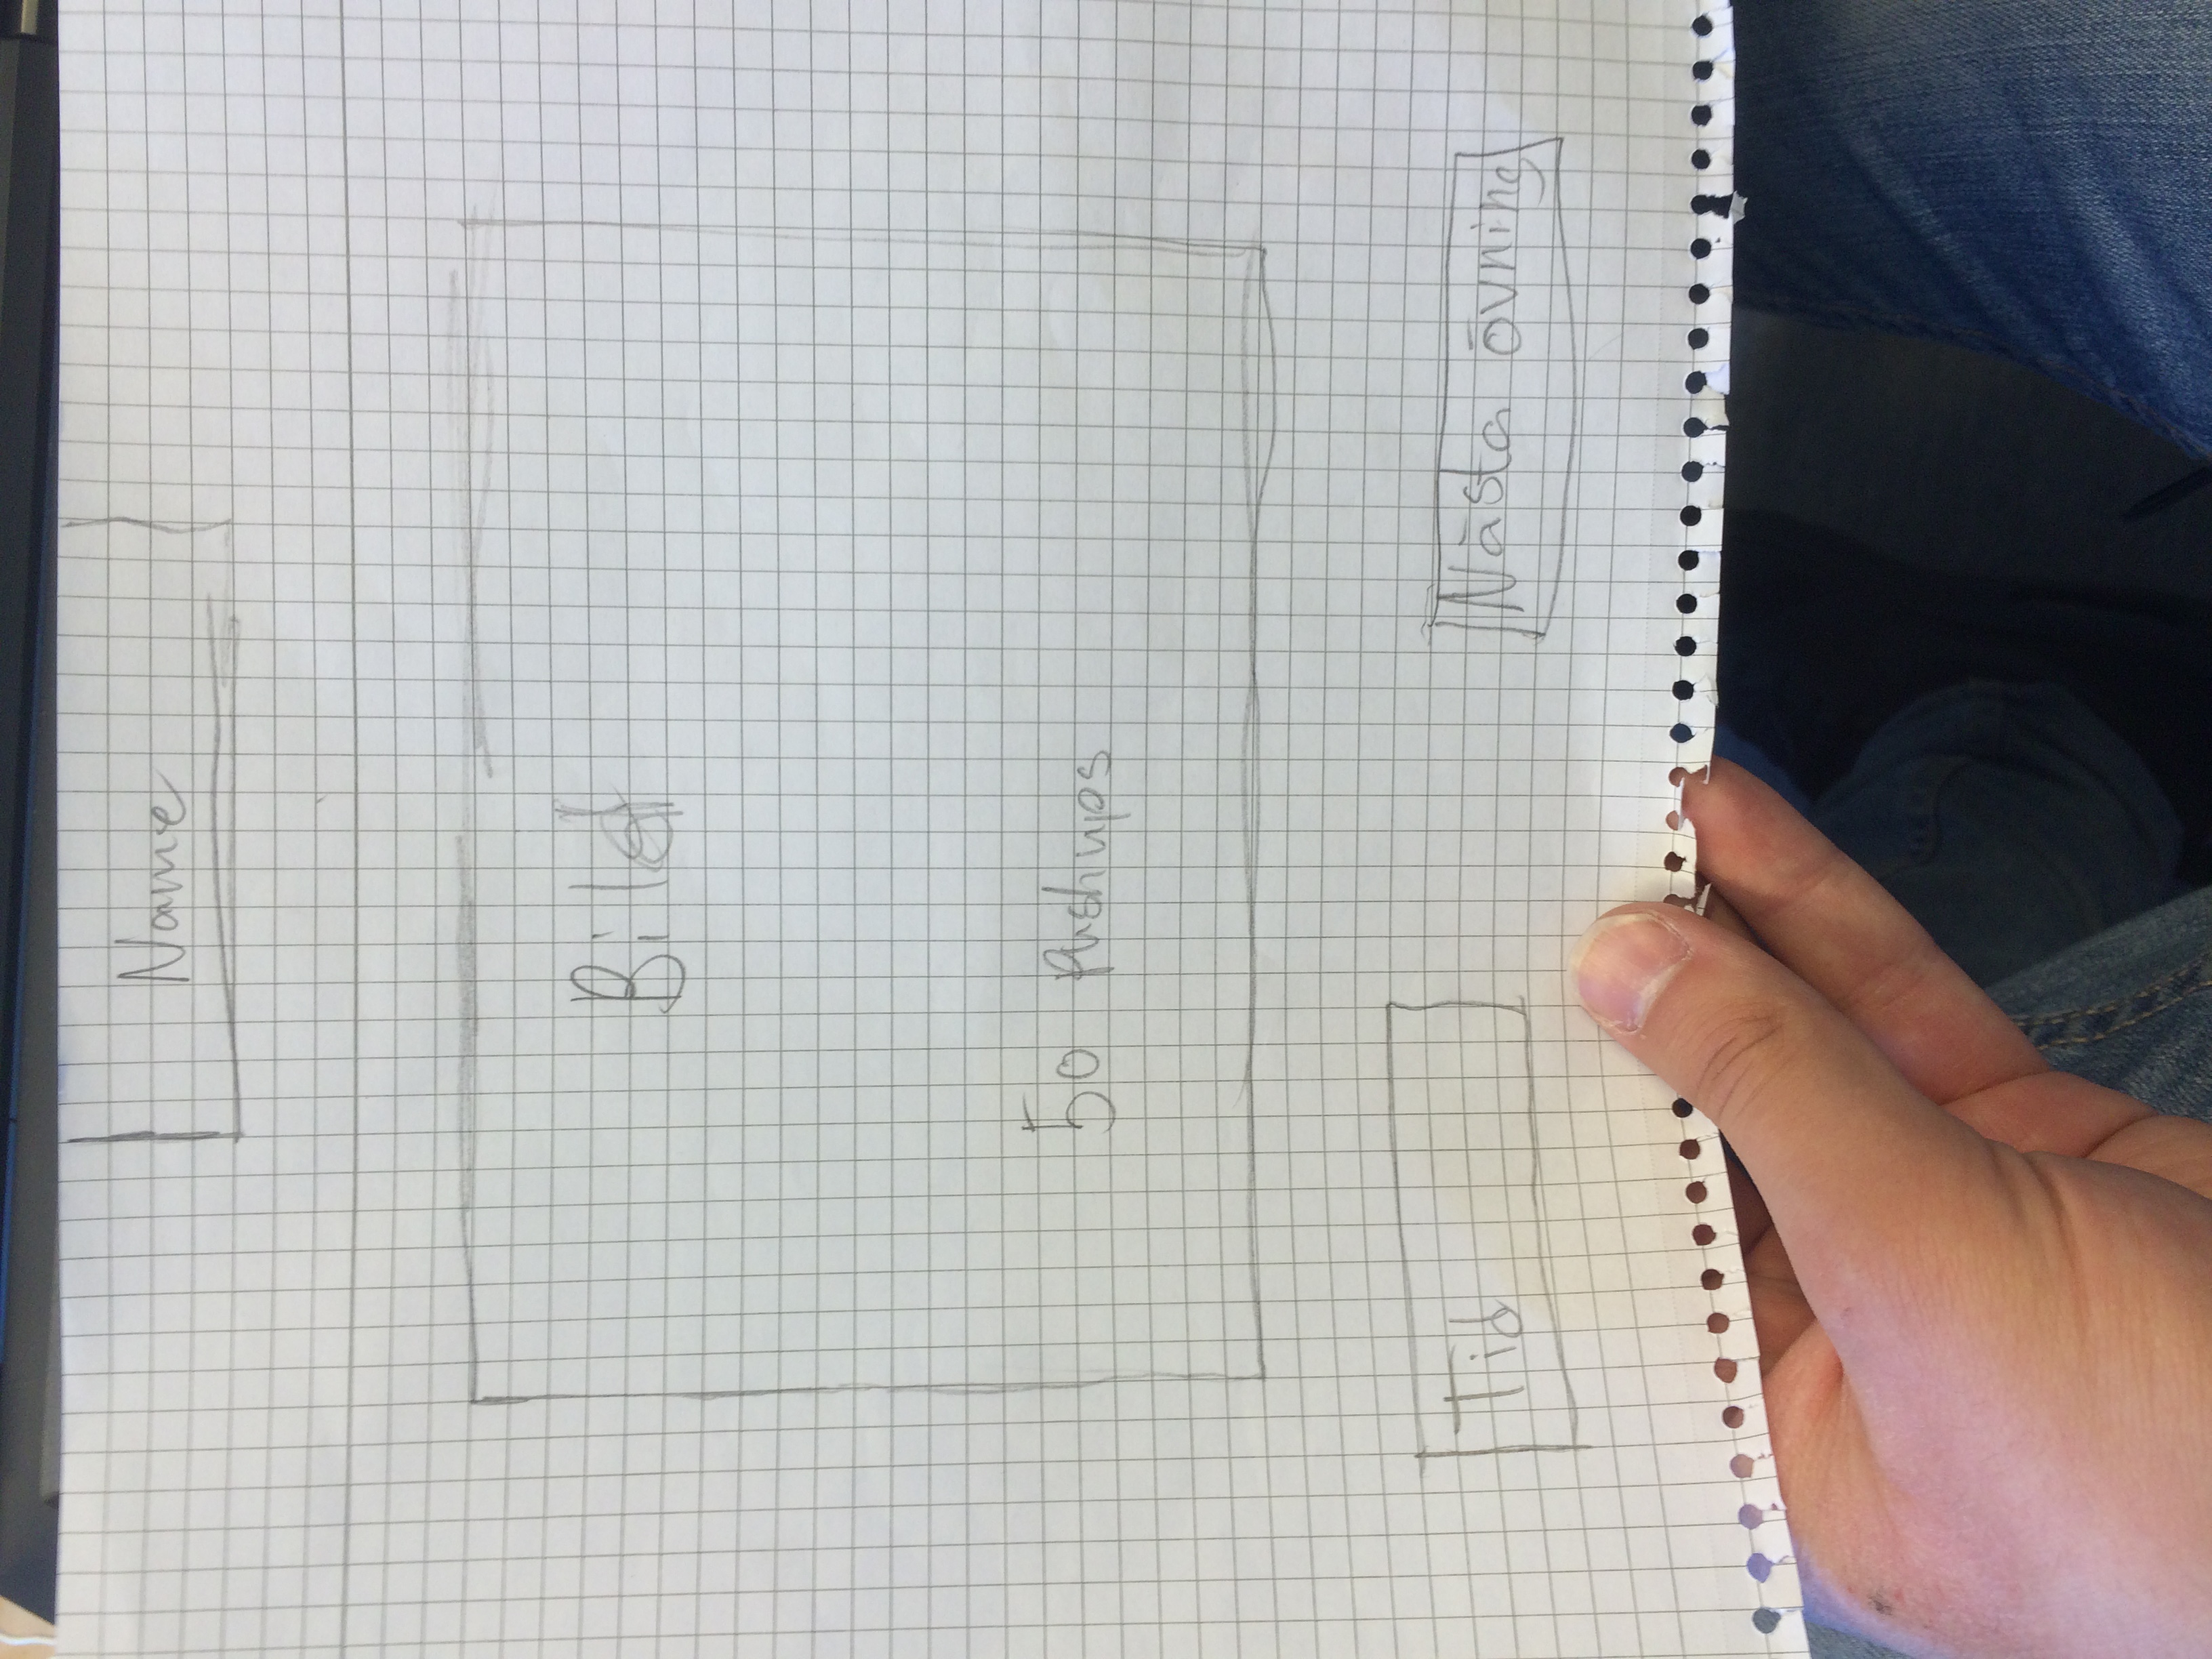 Name
Bild
50 Pushups
Tid
Nästa övning